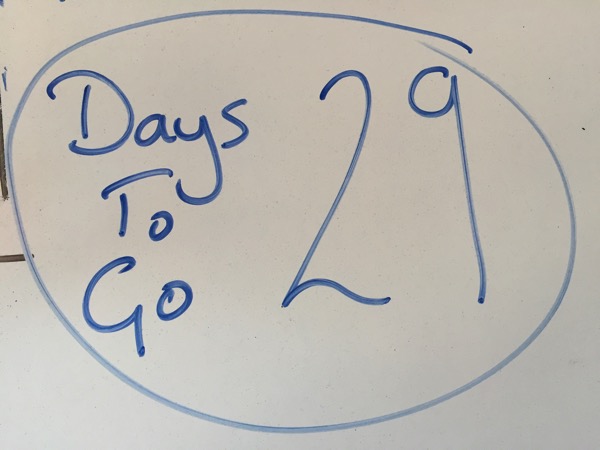 Days
To
Go
29